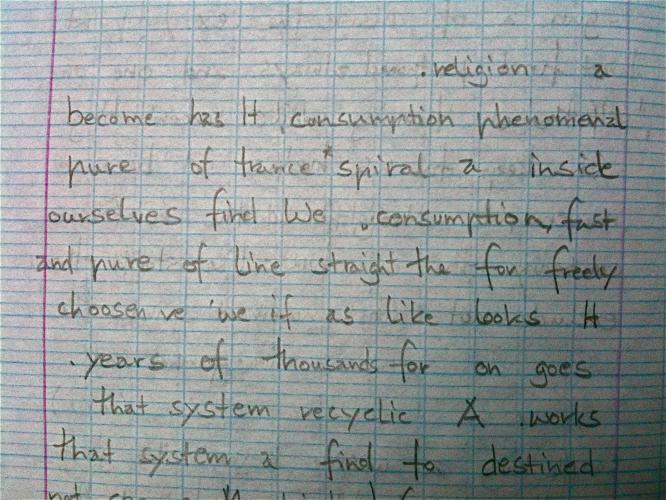 .religion a
become has It .consumption phenomenal
pure of trance* spiral a inside
ourselves find We .consumption, fast
and pure of line straight the for freely
choosen ve 'we if as like looks It
.years of thousands for on goes
that system recyclic A .works
that system a find to destined